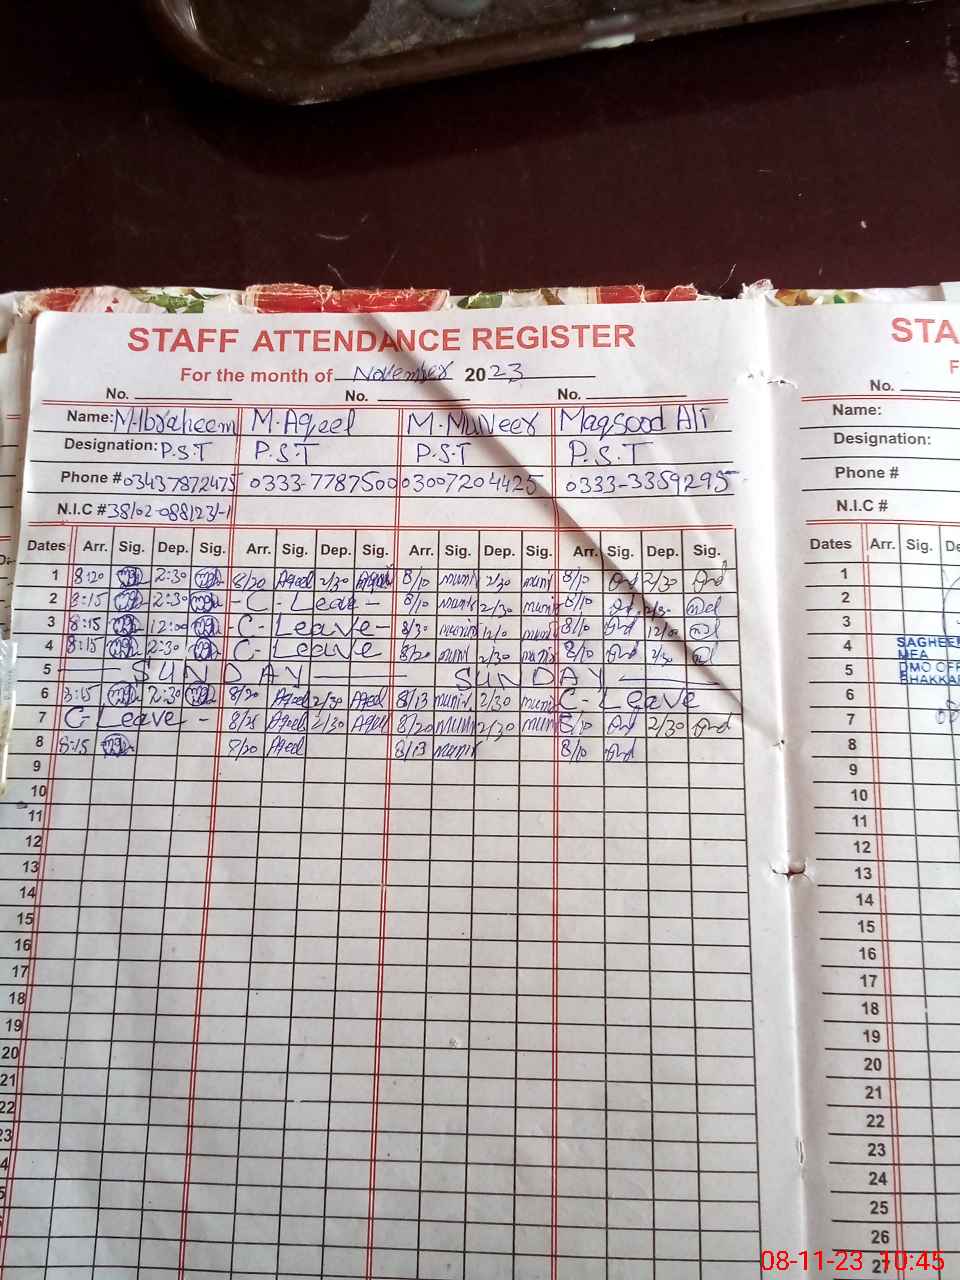 STAFF ATTENDANCE REGISTER
For the month of November 2023
No. No. No.
Name: M.Ibraheem M.Aqeel M.MuNeer Maqsood Ali
Designation: P.S.T P.S.T P.S.T P.S.T
Phone # 03437872475 0333-7787500 03007204425 0333-3359295
N.I.C #
Dates Arr. Sig. Dep. Sig. Arr. Sig. Dep. Sig. Arr. Sig. Dep. Sig. Arr. Sig. Dep. Sig.
1 8:20 2:30 8/20 Aqeel 2/30 Aqeel 8/10 munir 2/30 munir 8/10 2/30
2 8:15 2:30 - C - Leave - 8/10 munir 2/30 munir 8/10 2/30
3 8:15 12:00 - C - Leave - 8/30 munir 12/0 munir 8/10 12/0
4 8:15 2:30 C - Leave 8/20 munir 2/30 munir 8/10 2/30
5 SUNDAY SUNDAY
6 8:15 2:30 8/20 Aqeel 2/30 Aqeel 8/13 munir 2/30 munir C - Leave
7 C - Leave - 8/25 Aqeel 2/30 Aqeel 8/20 munir 2/30 munir 8/10 2/30
8 8:15 8/20 Aqeel 8/13 munir 8/10
9
10
11
12
13
14
15
16
17
18
19
20
21
22
23
STA
No.
Name:
Designation:
Phone #
N.I.C #
Dates Arr. Sig.
1
2
3
4 SAGHEE
MEA
5 DMO OFF
BHAKKAR
6
7
8
9
10
11
12
13
14
15
16
17
18
19
20
21
22
23
24
25
26
27
08-11-23 10:45